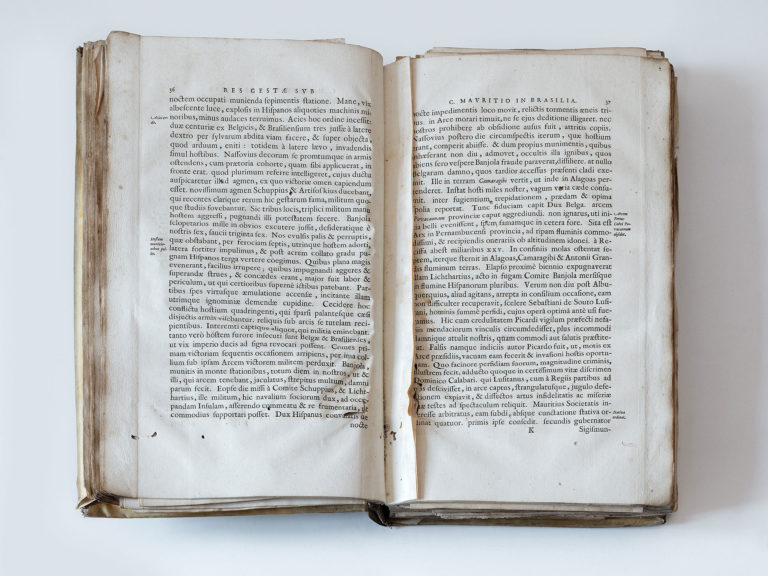 36 RES GESTÆ SVB
noctem occupati munienda sepimentis ſtatione. Mane, vix
albeſcente luce, exploſis in Hiſpanos aliquoties machinis mi-
noribus, minus audaces terruimus. Acies hoc ordine inceſſit:
duæ centuriæ ex Belgicis, & Braſilienſium tres juſſæ à latere
dextro per ſylvarum abdita viam facere, & ſuper objecta,
quod arduum, eniti: totidem à latere lævo, invadendis
ſimul hoſtibus. Naſſovius decorum ſe promtumque in armis
oſtendens, cum prætoria cohorte, quam ſibi applicuerat, in
fronte erat. quod plurimum referre intelligeret, cujus ductu
auſpicaretur illud agmen, ex quo victoriæ omen capiendum
eſſet. noviſſimum agmen Schuppius & Artiſoſkius ducebant,
qui recentes clarique rerum hic geſtarum fama, militum quo-
que ſtudiis fovebantur. Sic tribus locis, triplici militum manu
hoſtem aggreſſi, pugnandi illi poteſtatem fecere. Banjola
ſclopetarios miſſe in obvios excutere juſſit, deſideratique è
noſtris ſex, ſaucii triginta ſex. Nos evulſis palis & perruptis,
quæ obſtabant, per ferociam ſeptis, utrinque hoſtem adorti,
latera fortiter impulimus, & poſt acrem collato gradu pu-
gnam Hiſpanos terga vertere coegimus. Quibus plana magis
evenerant, facilius irrupere; quibus impugnandi aggeres &
ſuperandæ ſtrues, & concædes erant, major fuit labor &
periculum, ut qui certioribus ſuperne ictibus patebant. Par-
tibus ſpes virtuſque æmulatione accenſæ, incitante illam
utrimque ignominiæ demendæ cupidine. Cecidere hoc
conflictu hoſtium quadringenti, qui ſparſi palanteſque cæſi
disjectis armis viſebantur. reliquis ſub arcis ſe tutelam reci-
pientibus. Interemti captique aliquot, qui militia eminebant.
tanto verò hoſtem furore inſecuti ſunt Belgæ & Braſilienſes,
ut vix imperio ducis ad ſigna revocari poſſent. Comes pri-
mam victoriam ſequentis occaſionem arripiens, per ima col-
lium ſub ipſam Arcem victorem militem perduxit. Banjola
munitis in monte ſtationibus, totum diem in noſtros, ut &
illi, qui arcem tenebant, jaculatus, ſtrepitus multum, damni
parum fecit. Eopſe die miſſi à Comite Schuppius, & Licht-
hartius, ille militum, hic navalium ſociorum dux, ad occu-
pandam Inſulam, aſſerendo commeatu & re frumentaria, ut
commodius ſupportari poſſet. Dux Hiſpanus convaſatis
nocte
C. MAVRITIO IN BRASILIA. 37
nocte impedimentis loco movit, relictis tormentis æneis tri-
bus. in Arce morari timuit, ne ſi ejus deditione illigaret. nec
noſtros prohibere ab obſidione auſus fuit, attritis copiis.
Naſſovius poſtero die circumſpectis iterum, quæ hoſtium
erant, comperit abiiſſe. & dum propius munimentis, quibus
inhæſerant non diu, admovet, occultis illa ignibus, quos
abiens ſero veſpere Banjola fraude paraverat, diſſiliere. at nullo
Belgarum damno, quos tardior acceſſus præſenti cladi exe-
mit. Ille in terram Camaragibi vertit, ut inde in Alagoas per-
tenderet. Inſtat hoſti miles noſter, vagum variâ cæde conſu-
mit. inter fugientium trepidationem, prædam & opima
ſpolia reportat. Tunc fiduciam capit Dux Belga. arcem
provinciæ caput aggrediundi. non ignarus, uti ini-
tia belli eveniſſent, ſpem, famamque in cetera fore. Sita eſt
Arx in Pernambucenſi provincia, ad ripam fluminis commo-
diſſimi, & recipiendis onerariis ob altitudinem idonei. à Re-
ciffa abeſt miliaribus XXV. In confiniis molas oſtentat ſe-
ptem, iterque ſternit in Alagoas, Camaragibi & Antonii Gran-
dis fluminum terras. Elapſo proximè biennio expugnaverat
illam Lichthartius, acto in fugam Comite Banjola meritiſque
in flumine Hiſpanorum pluribus. Verum non diu poſt Albu-
querquius, aliud agitans, arrepta in conſilium occaſione, eam
non difficulter recuperavit, ſcelere Sebaſtiani de Souto Luſi-
tani, hominis ſummè perfidi, cujus operâ optimâ ante uſi fue-
ramus. Hic cum credulitatem Picardi vigilum præfecti nefa-
riis mendaciorum vinculis circumdediſſet, plus incommodi
damnique attulit noſtris, quàm commodi aut ſalutis præſtite-
rat. Falſis namque indiciis autor Picardo fuit, ut, motis ex
Arce præſidiis, vacuam eam fecerit & invaſioni hoſtis oportu-
nam. Quo facinore perfidiam ſuorum, magnitudine criminis,
illuſtrem fecit. adducto quoque in certiſſimum vitæ diſcrimen
Dominico Calabari. qui Luſitanus, cum à Regiis partibus ad
nos deſciviſſet, in arce captus, ſtrangulatuſque, jugulo defe-
ctionem expiavit, & diſſectos artus infidelitatis ac miſeriæ
ſuæ teſtes ad ſpectaculum reliquit. Mauritius Societatis in-
tereſſe arbitratus, eam ſubdi, abſque cunctatione ſtativa or-
dinat quatuor. primis ipſe conſedit. ſecundis gubernator
K Sigiſmun-